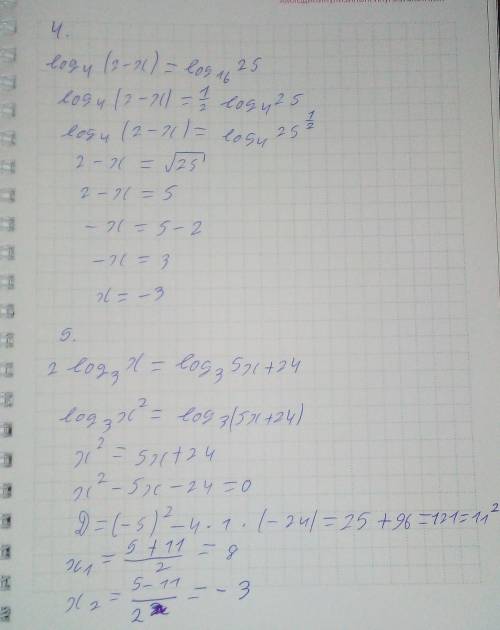 4.
log₄ (2-x) = log₁₆ 25
log₄ (2-x) = 1/2 log₄ 25
log₄ (2-x) = log₄ 25^(1/2)
2-x = √25
2-x = 5
-x = 5-2
-x = 3
x = -3
5.
2 log₃ x = log₃ 5x+24
log₃ x² = log₃ (5x+24)
x² = 5x+24
x² - 5x - 24 = 0
D = (-5)² - 4 · 1 · (-24) = 25 + 96 = 121 = 11²
x₁ = (5+11)/2 = 8
x₂ = (5-11)/2 = -3